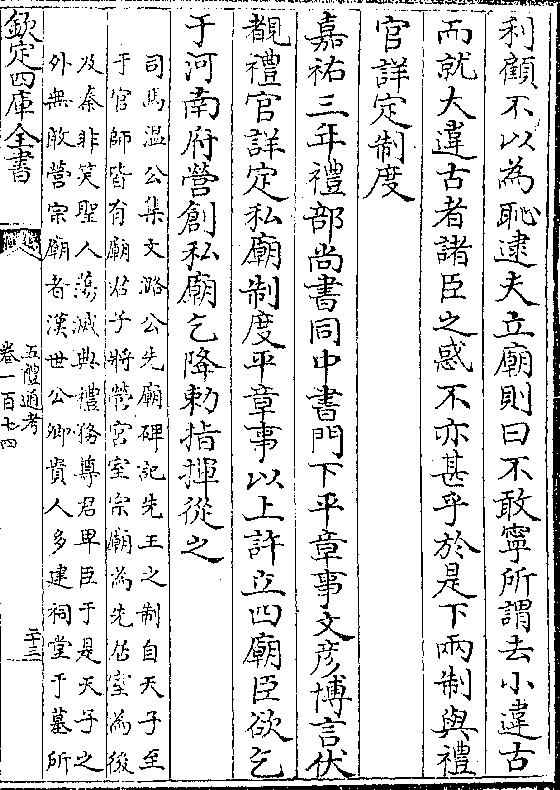 利顧不以為恥逮夫立廟則曰不敢寧所謂去小違古
而就大違古者諸臣之惑不亦甚乎於是下兩制與禮
官詳定制度
嘉祐三年禮部尚書同中書門下平章事文彦博言伏
覩禮官詳定私廟制度平章事以上許立四廟臣欲乞
于河南府營創私廟乞降勅指揮從之
司馬温公集文潞公先廟碑記先王之制自天子至
于官師皆有廟君子將營宫室宗廟為先居室為後
及秦非笑聖人蕩滅典禮務尊君卑臣于是天子之
外無敢營宗廟者漢世公卿貴人多建祠堂于墓所
欽定四庫全書
五禮通考
卷一百七十四
二十三